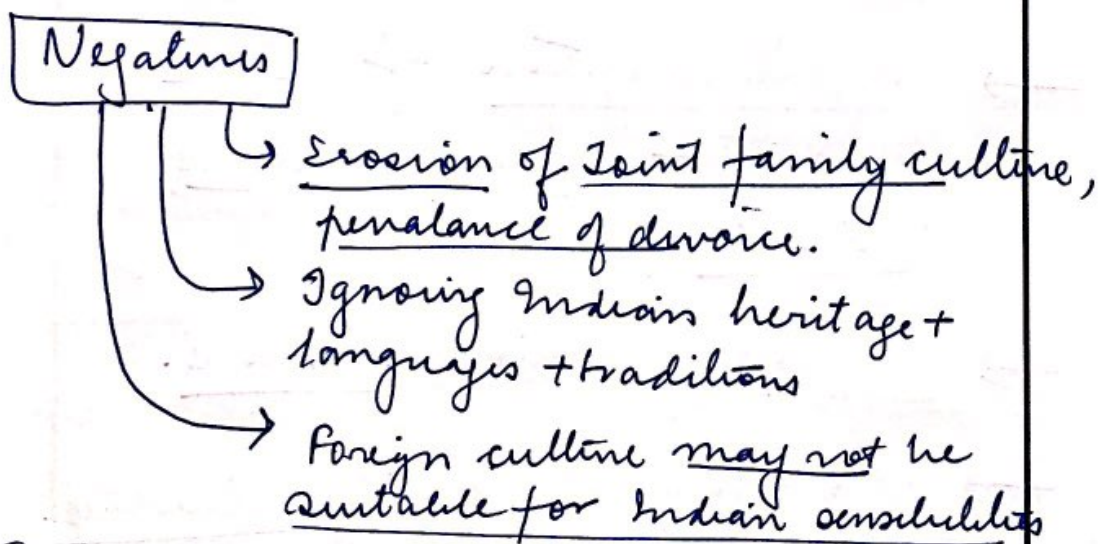 Negatives
Erosion of Joint family culture,
prevalance of divorce.
Ignoring Indian heritage +
languages + traditions
Foreign culture may not be
suitable for Indian sensibilities